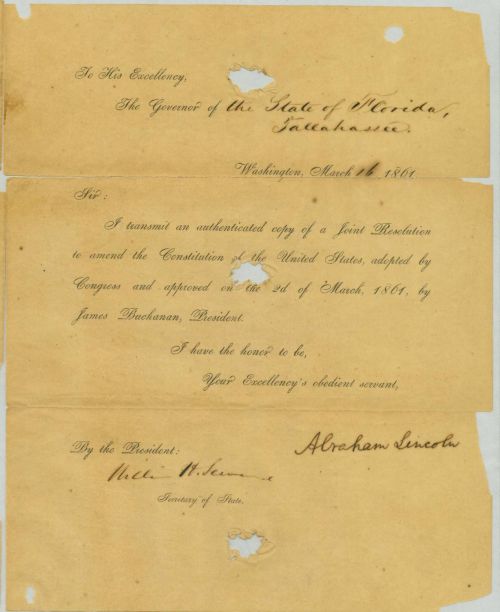 To His Excellency,
The Governor of the State of Florida,
Tallahassee.
Washington, March 16 1861.
Sir:
I transmit an authenticated copy of a Joint Resolution
to amend the Constitution of the United States, adopted by
Congress and approved on the 2d of March, 1861, by
James Buchanan, President.
I have the honor to be,
Your Excellency's obedient servant,
Abraham Lincoln
By the President:
William H. Seward
Secretary of State.